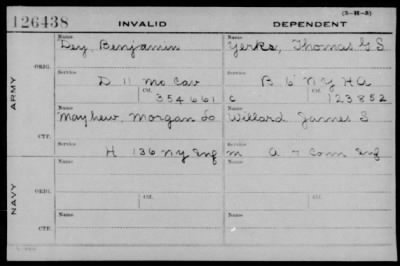 (3-H-3)
126438 INVALID DEPENDENT
Name Name
Dey, Benjamin Yerks, Thomas G S
ORIG.
Service Service
D 11 Mo Cav B 6 N Y H A
Ctf. Ctf.
354661 C 123852
ARMY
Name Name
Mayhew, Morgan Willard James S
Service Service
H 136 NY Eng m A Com Eng
CTF.
Name Name
NAVY
ORIG. Ctf. Ctf.
Name Name
CTF.